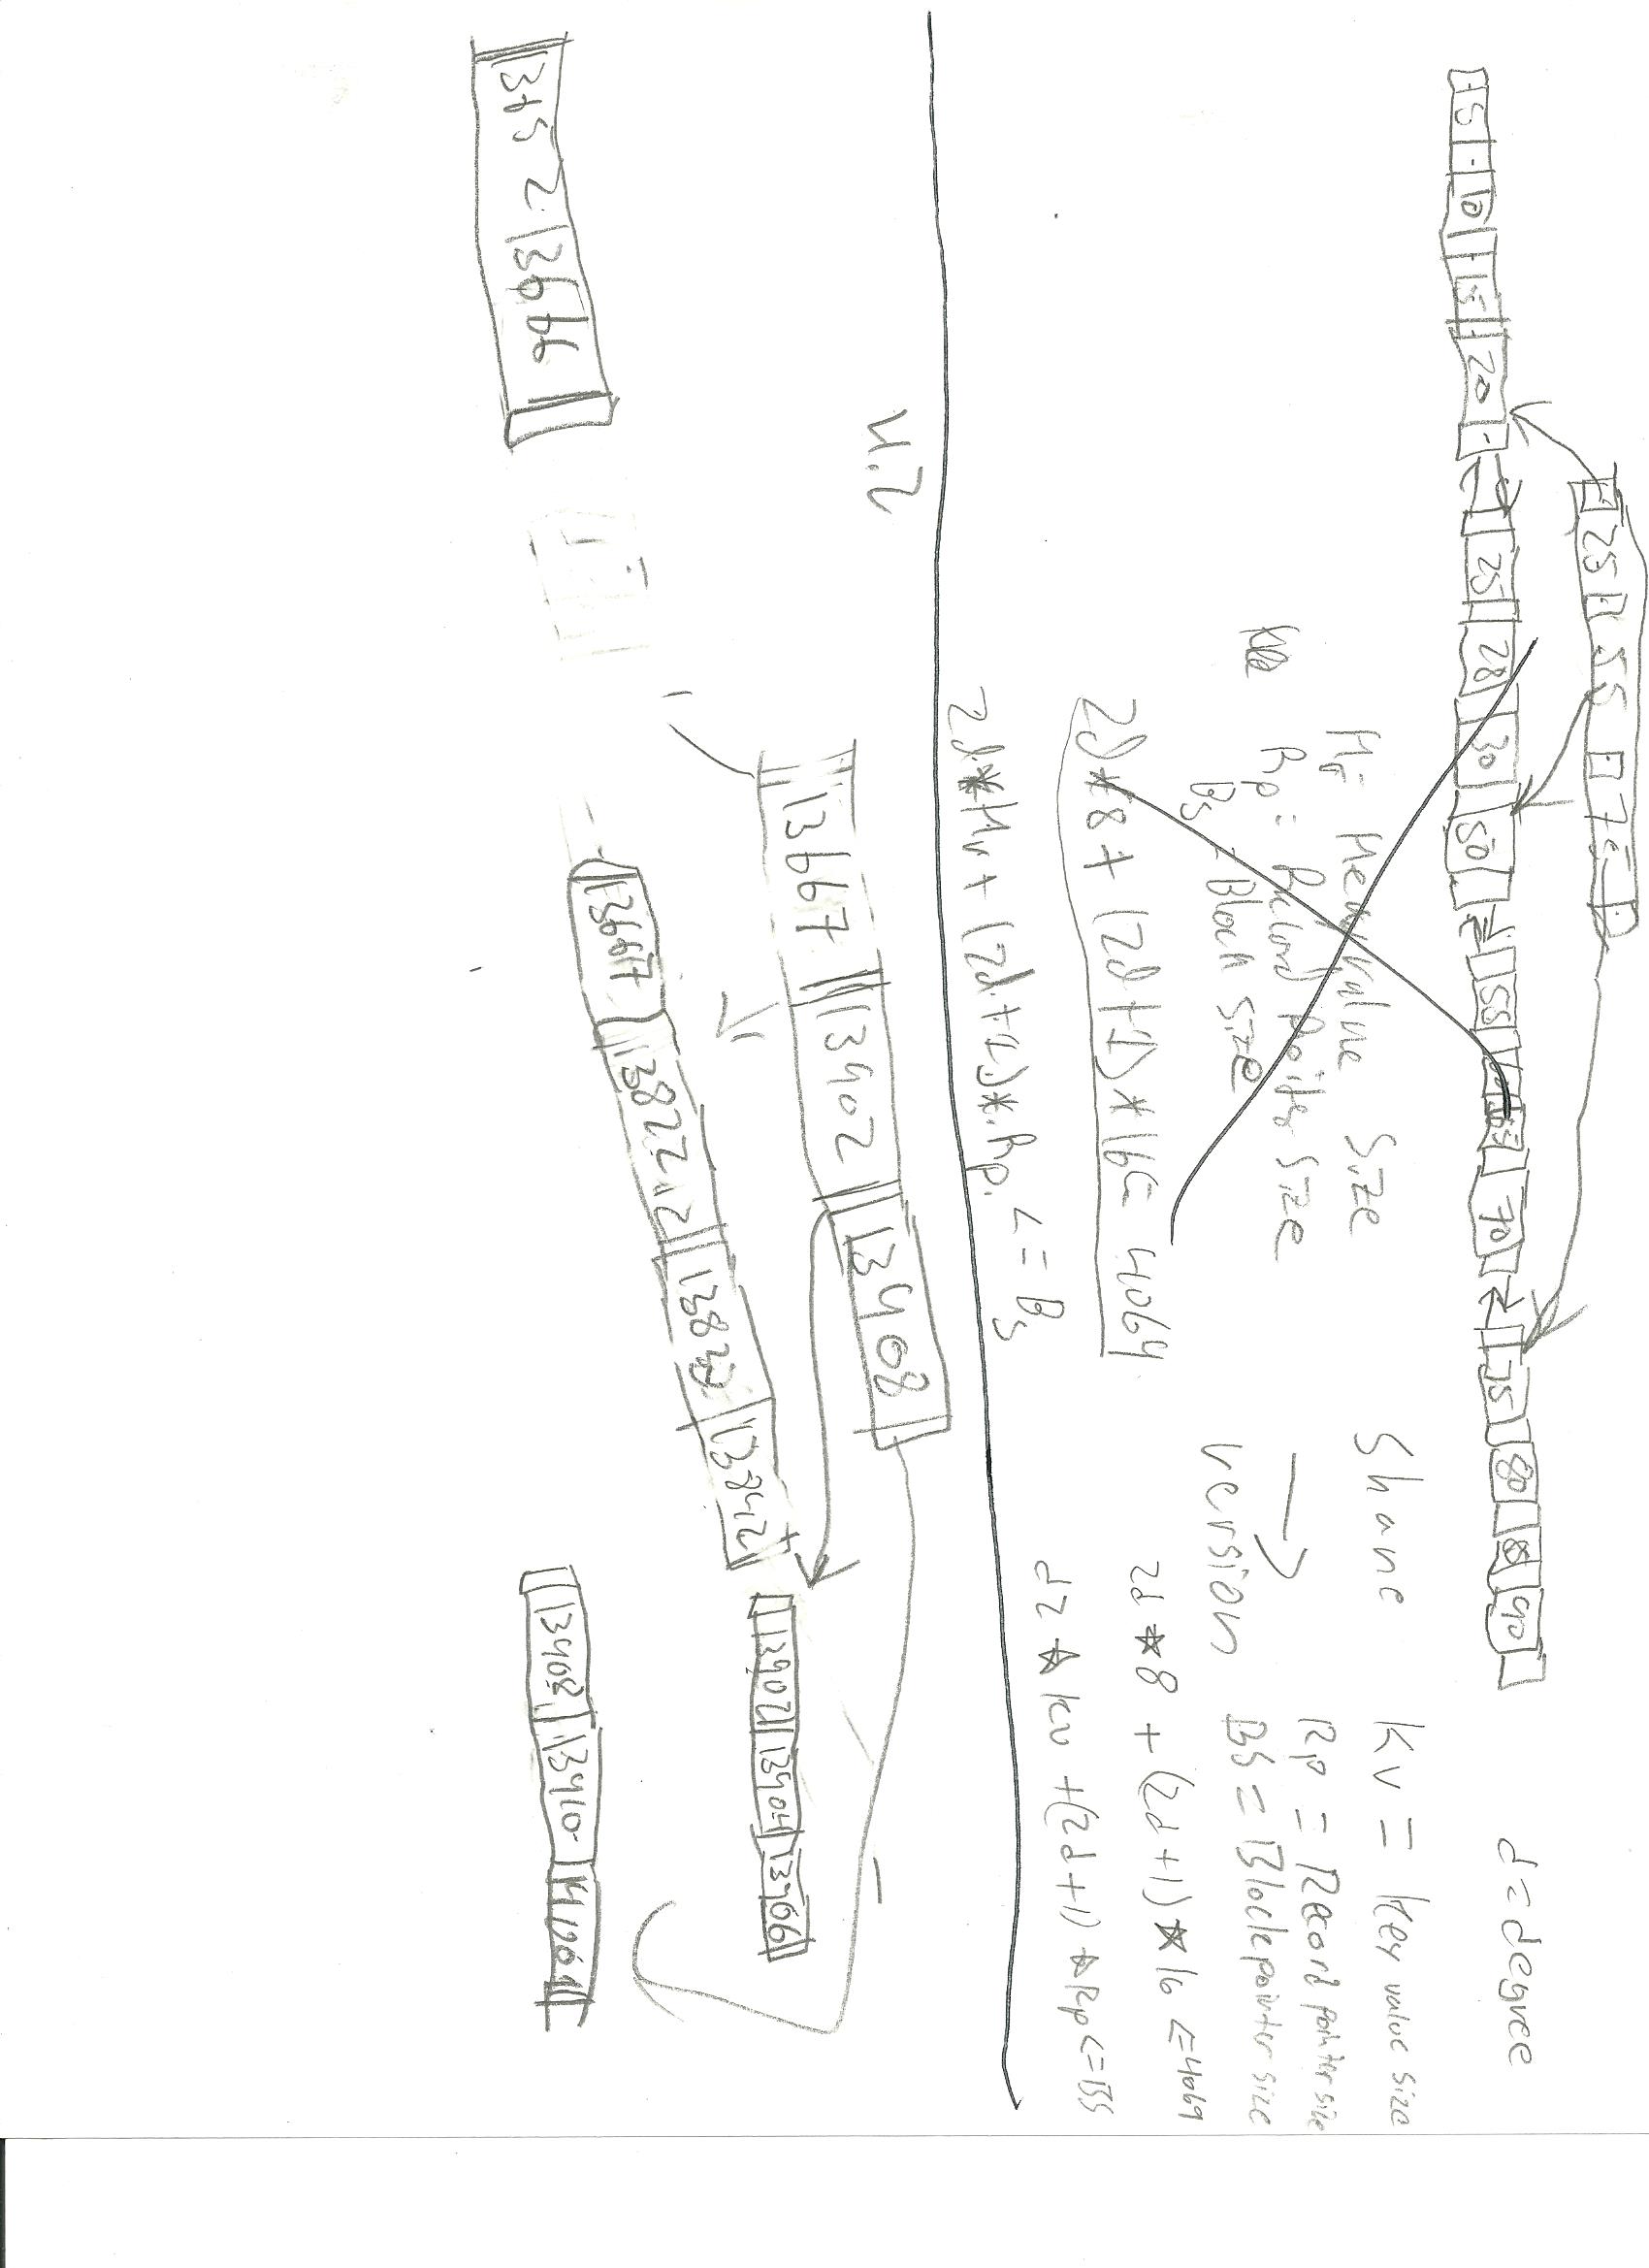 25 55 75
5 10 15 20 25 28 30 50 55 60 65 70 75 80 85 90
d = degree
Size
Rp = Record Size
Bs = Block size
2d*8 + (2d+1)*16 <= 4069
2d*Kv + (2d+1)*Rp <= Bs
Shane
version
Kv = Key value size
Rp = Record pointer size
BS = Block pointer size
2d * 8 + (2d+1) * 16 <= 4069
d2 * Kv + (2d+1) * Rp <= BS
4.2
13667 13902 13908
13902 13904 13906
13667 13822.2 13832 13842
3652 13666
13908 13910 14001